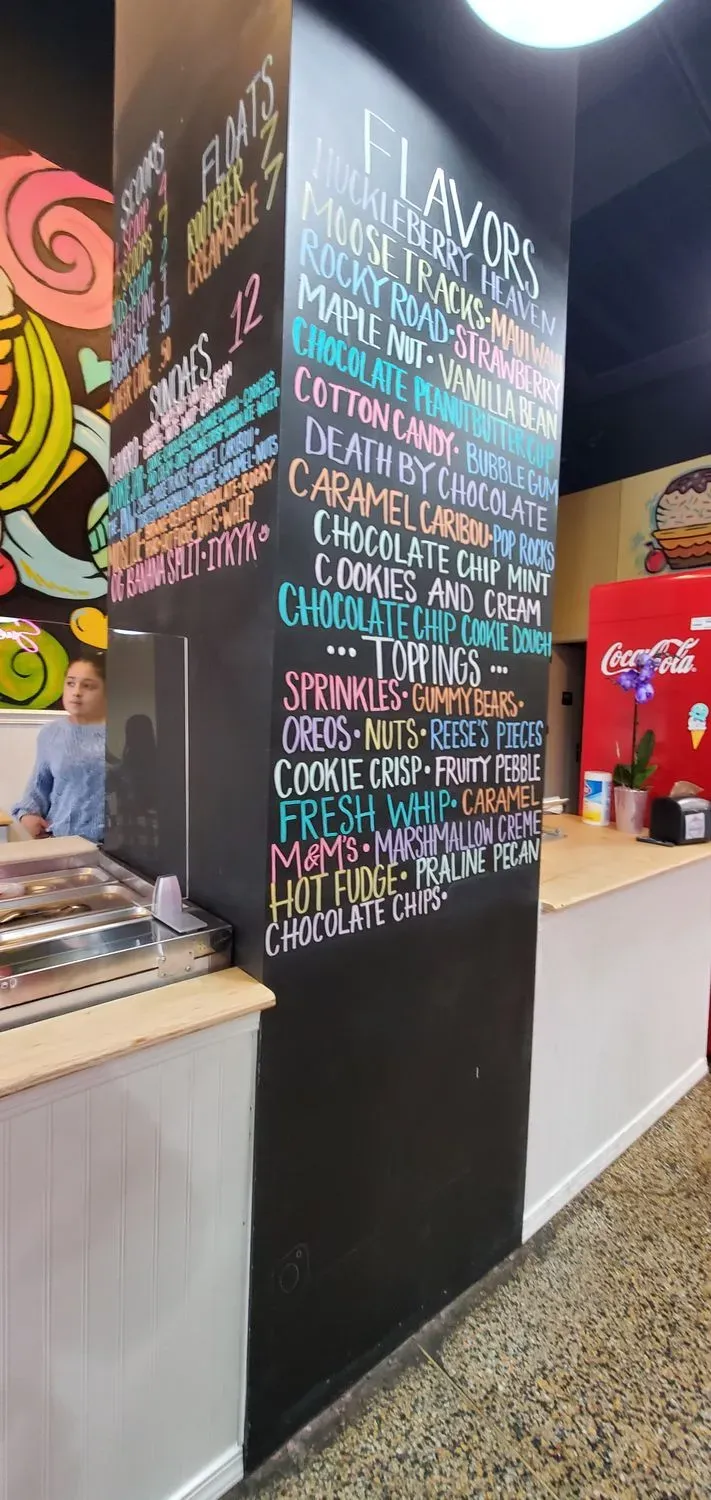 SCOOPS
SCOOP 4
SCOOPS 7
KIDS SCOOP 2
WAFFLE CONE 1
SUGAR CONE .50
WAFER CONE .50
FLOATS
ROOTBEER 7
CREAMSICLE 7
SUNDAES 12
OG BANANA SPLIT • IYKYK
FLAVORS
HUCKLEBERRY HEAVEN
MOOSETRACKS • MAUI WAUI
ROCKY ROAD • STRAWBERRY
MAPLE NUT • VANILLA BEAN
CHOCOLATE PEANUTBUTTER CUP
COTTON CANDY • BUBBLE GUM
DEATH BY CHOCOLATE
CARAMEL CARIBOU • POP ROCKS
CHOCOLATE CHIP MINT
COOKIES AND CREAM
CHOCOLATE CHIP COOKIE DOUGH
••• TOPPINGS •••
SPRINKLES • GUMMY BEARS •
OREOS • NUTS • REESE'S PIECES
COOKIE CRISP • FRUITY PEBBLE
FRESH WHIP • CARAMEL
M&M'S • MARSHMALLOW CREME
HOT FUDGE • PRALINE PECAN
CHOCOLATE CHIPS •
Coca-Cola